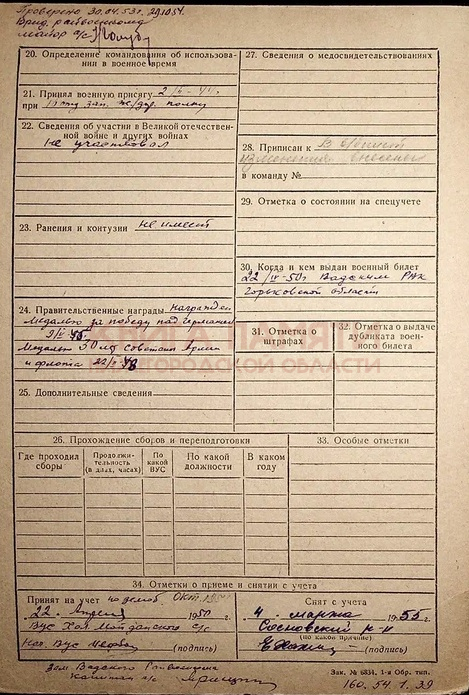 Проверено 30.04.53г. 29.10.54.
Врид. райвоенкома
майор а/с
20. Определение командования об использовании в военное время
21. Принял военную присягу 2/II-44г.
при 10 му зап. ж/дор. полку
22. Сведения об участии в Великой отечественной войне и других войнах
Не участвовал
23. Ранения и контузии не имеет
24. Правительственные награды Награжден
Медалью за победу над Германией
9/V 45
Медаль 30 лет Советской Армии
и флота 22/II 48
25. Дополнительные сведения
27. Сведения о медосвидетельствованиях
28. Приписан к
изменения внесены
в команду №
29. Отметка о состоянии на спецучете
30. Когда и кем выдан военный билет
22/IV-50г Вадским РВК
Горьковской области
31. Отметка о штрафах
32. Отметка о выдаче дубликата военного билета
26. Прохождение сборов и переподготовки
Где проходил сборы
Продолжительность (в днях, часах)
По какой ВУС
По какой должности
В каком году
33. Особые отметки
34. Отметки о приеме и снятии с учета
Принят на учет
22 Апреля 1950 г.
ВУС Хол Майданского с/с
Нач. ВУС
(подпись)
Зам. Вадского Райвоенкома
Капитан а/с
Снят с учета
4. марта 1955 г.
Сосновский р-н
(по какой причине)
(подпись)
Зак. № 6834. 1-я Обр. тип.
160. 54. 1. 39
НИЖЕГОРОДСКОЙ ОБЛАСТИ